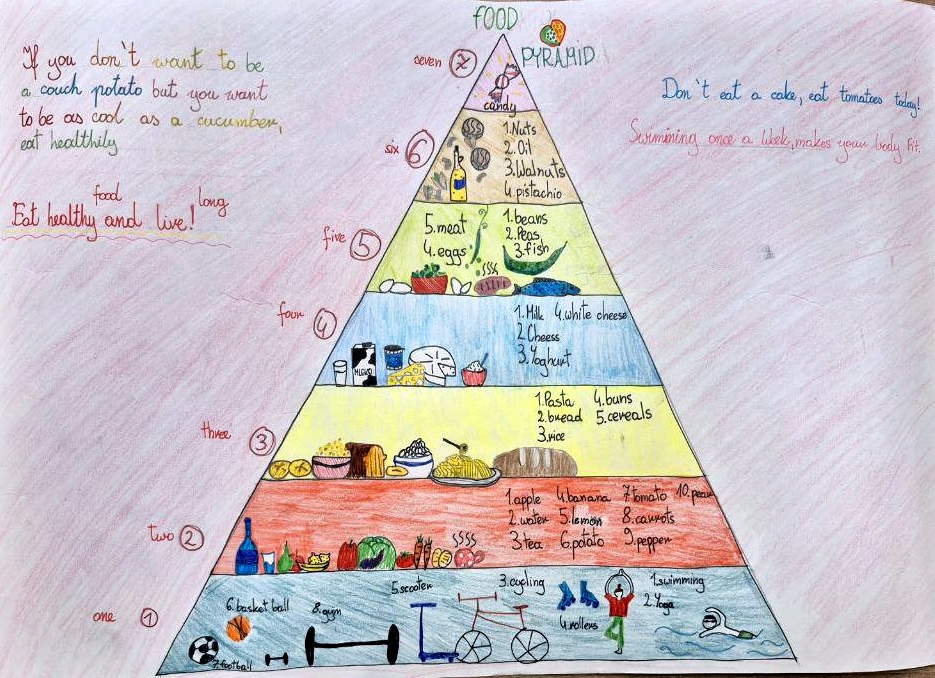 FOOD
PYRAMID
If you don't want to be
a couch potato but you want
to be as cool as a cucumber,
eat healthily
food long
Eat healthy and live!
Don't eat a cake, eat tomatoes today!
Swimining once a week, makes your body fit.
seven 7
candy
six 6
1.Nuts
2.Oil
3.Walnuts
4.pistachio
five 5
5.meat
4.eggs
1.beans
2.Peas
3.fish
four 4
1.Milk 4.white cheese
2.Cheess
3.Yoghurt
three 3
1.Pasta 4.buns
2.bread 5.cereals
3.rice
two 2
1.apple 4.banana 7.tomato 10.pear
2.water 5.lemon 8.carrots
3.tea 6.potato 9.pepper
one 1
6.basket ball
8.gym
5.scooter
3.cycling
4.rollers
1.swimming
2.Yoga
7.football